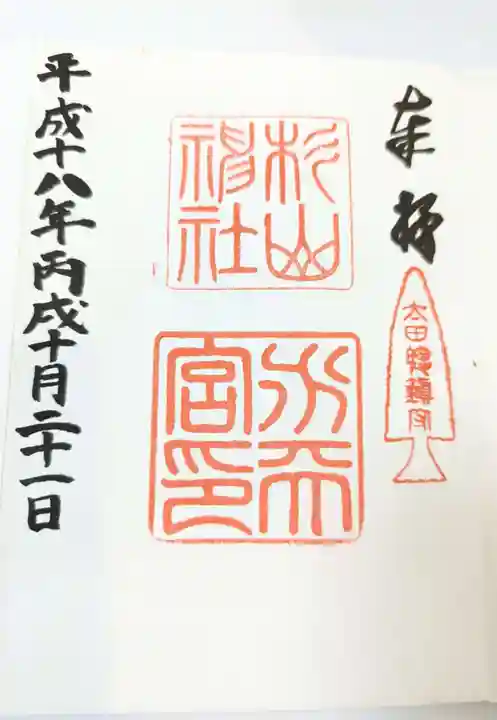 奉拝
太田総鎮守
杉山
神社
天
宮印
平成十八年丙戌十月二十一日